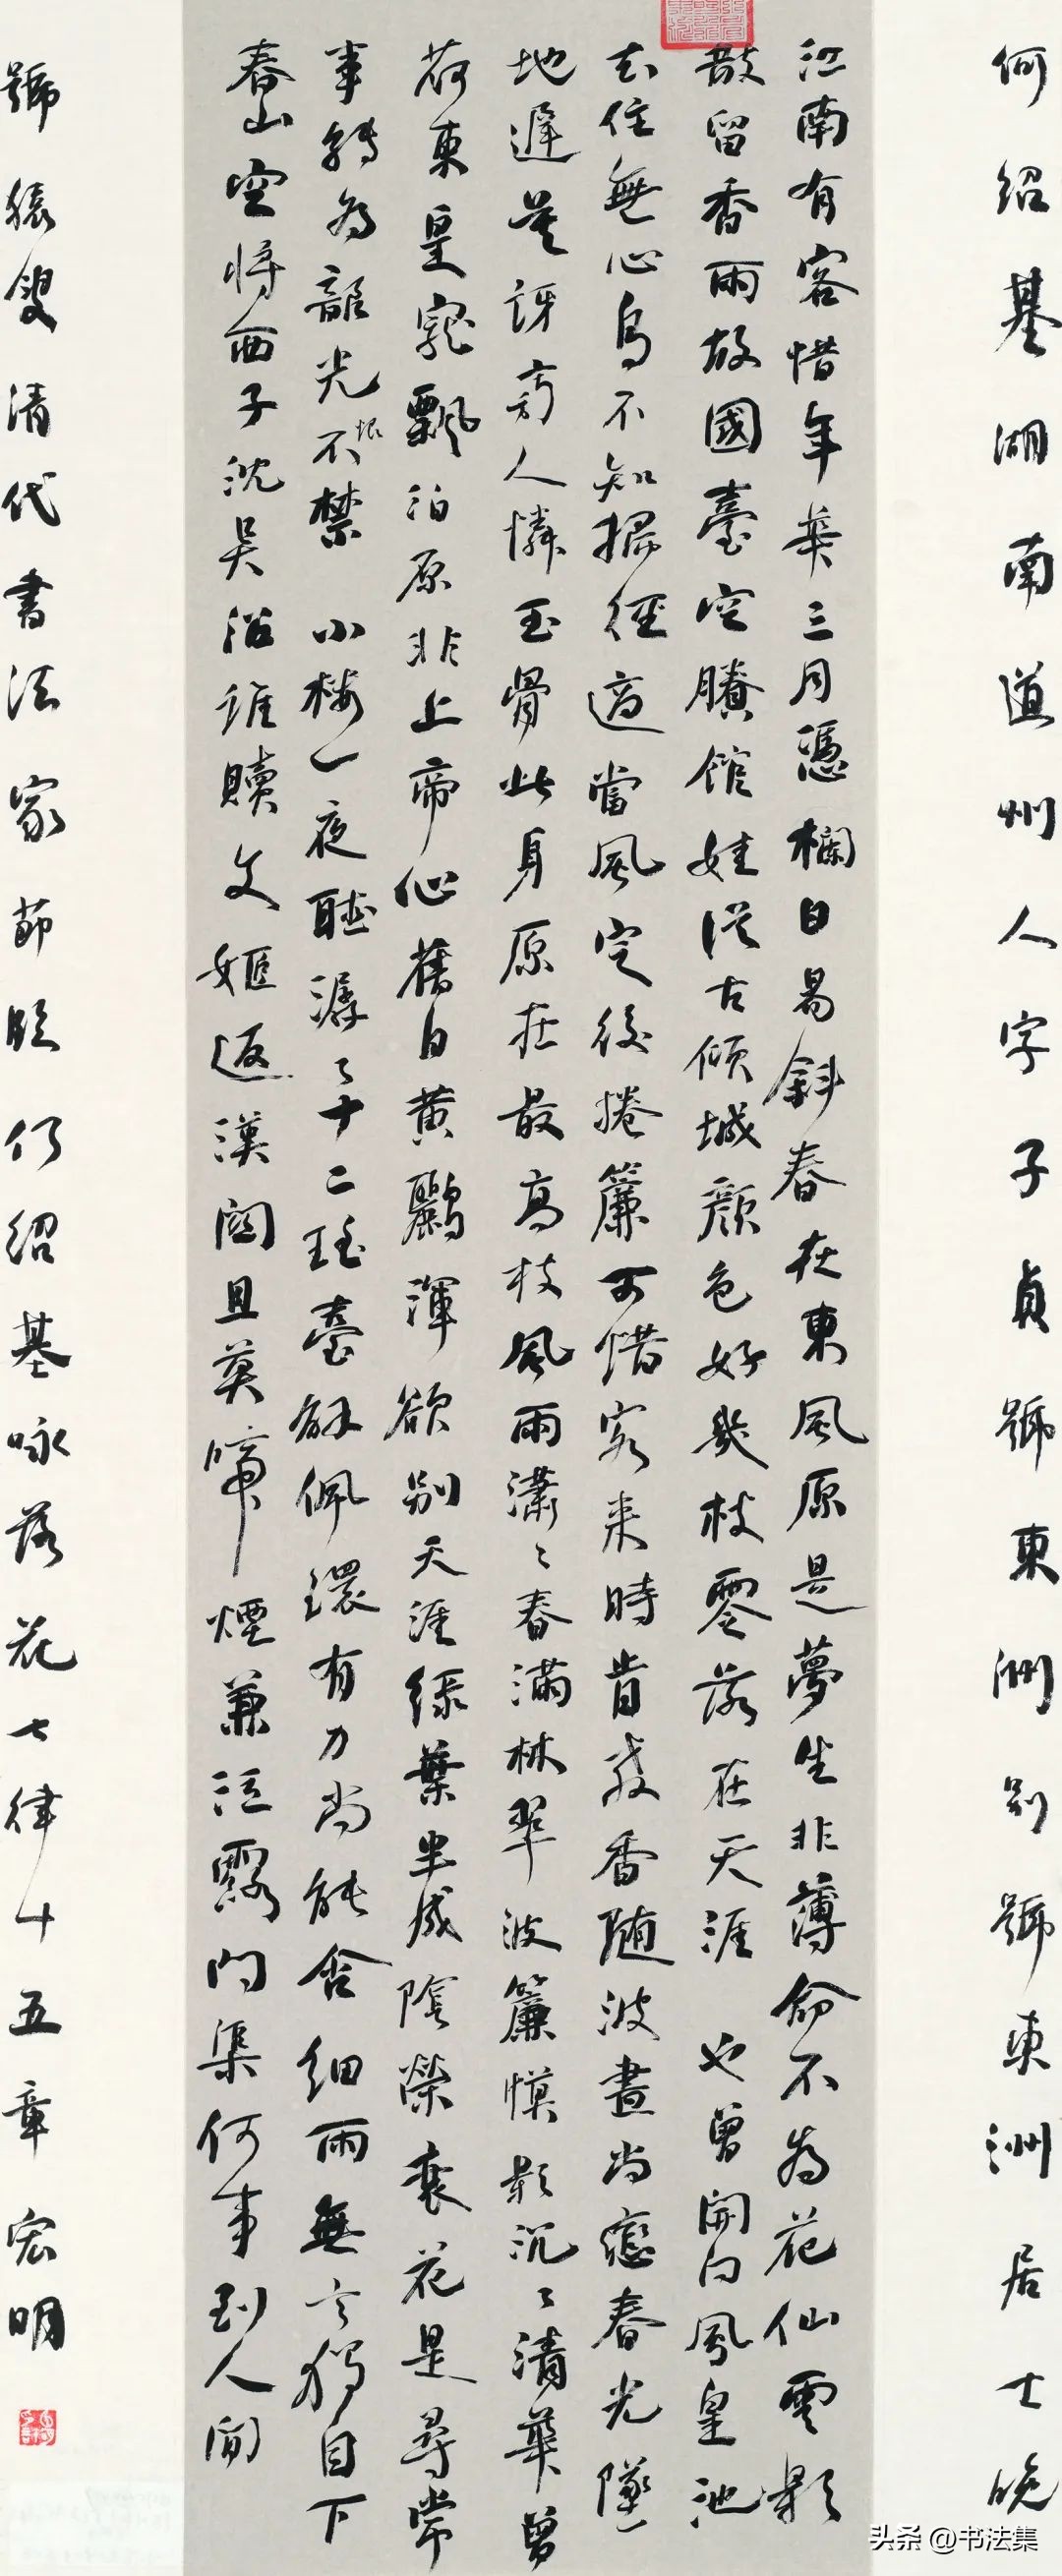 何绍基湖南道州人字子貞號東洲别號東洲居士晚
江南有客惜年華三月憑欄日易斜春在東風原是夢生非薄命不為花仙雲影
散留香雨故國臺空賸館娃從古傾城顏色好幾枝零落在天涯 也曾開向鳳皇池
去住無心鳥不知掃徑適當風定後捲簾可惜客来時肯教香随波盡尚戀春光墜
地遲莫訝旁人憐玉骨此身原在最高枝風雨瀟〻春滿林翠波簾幙影沉〻清華曾
荷東皇寵飄泊原非上帝心舊日黄鸝渾欲别天涯绿葉半成陰榮衰花是尋常
事轉為韶光恨不禁 小樓一夜聽潺〻十二瑶臺解佩環有力尚能含细雨無言獨自下
春山空将西子沈吴沼誰贖文姬返漢關且莫啼煙兼泣露問渠何事到人間
號猿叟清代書法家節臨何绍基咏落花七律十五章宏明
头条 @书法集